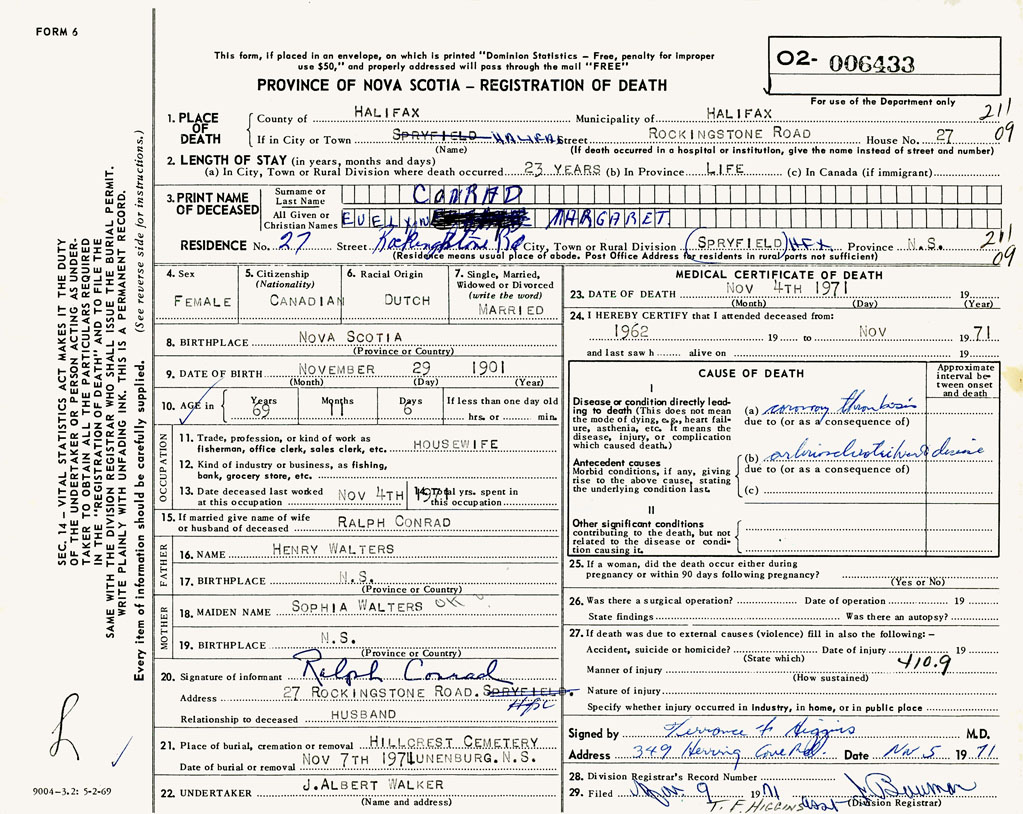 FORM 6
This form, if placed in an envelope, on which is printed "Dominion Statistics – Free, penalty for improper
use $50," and properly addressed will pass through the mail "FREE"
PROVINCE OF NOVA SCOTIA – REGISTRATION OF DEATH
O2- 006433
For use of the Department only
211
09
1. PLACE OF DEATH
County of HALIFAX Municipality of HALIFAX
If in City or Town SPRYFIELD HALIFAX Street ROCKINGSTONE ROAD House No. 27
(Name) (If death occurred in a hospital or institution, give the name instead of street and number)
2. LENGTH OF STAY (in years, months and days)
(a) In City, Town or Rural Division where death occurred 23 YEARS (b) In Province LIFE (c) In Canada (if immigrant)
3. PRINT NAME OF DECEASED
Surname or Last Name CONRAD
All Given or Christian Names EVELYN MARGARET
RESIDENCE No. 27 Street Rockingstone Rd City, Town or Rural Division (SPRYFIELD) HFX Province N.S.
(Residence means usual place of abode. Post Office Address for residents in rural parts not sufficient)
211
09
4. Sex
FEMALE
5. Citizenship (Nationality)
CANADIAN
6. Racial Origin
DUTCH
7. Single, Married, Widowed or Divorced (write the word)
MARRIED
8. BIRTHPLACE NOVA SCOTIA
(Province or Country)
9. DATE OF BIRTH NOVEMBER 29 1901
(Month) (Day) (Year)
10. AGE in Years 69 Months 11 Days 6 If less than one day old hrs. or min.
OCCUPATION
11. Trade, profession, or kind of work as
fisherman, office clerk, sales clerk, etc. HOUSEWIFE
12. Kind of industry or business, as fishing,
bank, grocery store, etc.
13. Date deceased last worked
at this occupation NOV 4TH 1971
14. Total yrs. spent in
this occupation
15. If married give name of wife
or husband of deceased RALPH CONRAD
FATHER
16. NAME HENRY WALTERS
17. BIRTHPLACE N.S.
(Province or Country)
MOTHER
18. MAIDEN NAME SOPHIA WALTERS OK
19. BIRTHPLACE N.S.
(Province or Country)
20. Signature of informant Ralph Conrad
Address 27 ROCKINGSTONE ROAD. SPRYFIELD. Hfx
Relationship to deceased HUSBAND
21. Place of burial, cremation or removal HILLCREST CEMETERY
Date of burial or removal NOV 7TH 1971 LUNENBURG. N.S.
22. UNDERTAKER J. ALBERT WALKER
(Name and address)
MEDICAL CERTIFICATE OF DEATH
23. DATE OF DEATH NOV 4TH 1971 19
(Month) (Day) (Year)
24. I HEREBY CERTIFY that I attended deceased from:
1962 19 to NOV 19 71
and last saw h alive on 19
CAUSE OF DEATH
Approximate interval between onset and death
I
Disease or condition directly leading to death (This does not mean the mode of dying, e.g., heart failure, asthenia, etc. It means the disease, injury, or complication which caused death.)
(a) coronary thrombosis
due to (or as a consequence of)
Antecedent causes
Morbid conditions, if any, giving rise to the above cause, stating the underlying condition last.
(b) arteriosclerotic heart disease
due to (or as a consequence of)
(c)
II
Other significant conditions
contributing to the death, but not related to the disease or condition causing it.
25. If a woman, did the death occur either during
pregnancy or within 90 days following pregnancy?
(Yes or No)
26. Was there a surgical operation? Date of operation 19
State findings Was there an autopsy?
27. If death was due to external causes (violence) fill in also the following: –
Accident, suicide or homicide? Date of injury 19
(State which)
410.9
Manner of injury
(How sustained)
Nature of injury
Specify whether injury occurred in industry, in home, or in public place
Signed by Terrance F Higgins M.D.
Address 349 Herring Cove Rd. Date Nov 5 19 71
28. Division Registrar's Record Number
29. Filed Nov. 9 1971
T. F. HIGGINS
(Division Registrar)
SEC. 14 – VITAL STATISTICS ACT MAKES IT THE DUTY
OF THE UNDERTAKER OR PERSON ACTING AS UNDER-
TAKER TO OBTAIN ALL THE PARTICULARS REQUIRED
IN THE "REGISTRATION OF DEATH" AND TO FILE THE
SAME WITH THE DIVISION REGISTRAR WHO SHALL ISSUE THE BURIAL PERMIT.
WRITE PLAINLY WITH UNFADING INK. THIS IS A PERMANENT RECORD.
Every item of information should be carefully supplied. (See reverse side for instructions.)
9004-3.2: 5-2-69